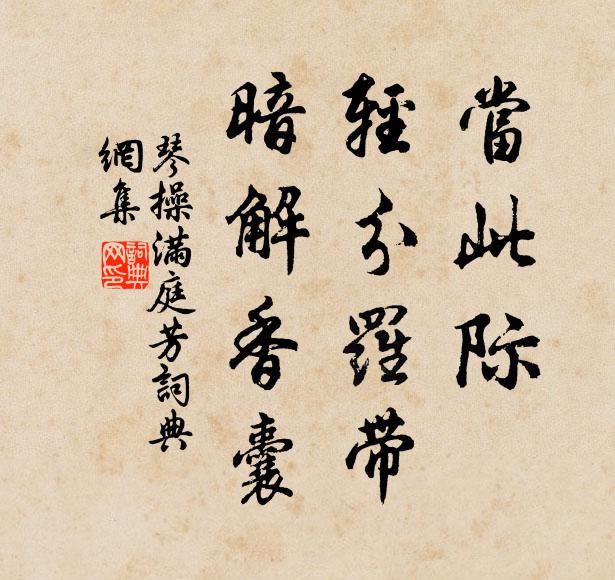 當此际
輕分羅帶
暗解香囊
琴操滿庭芳詞典
網集
詞典网印